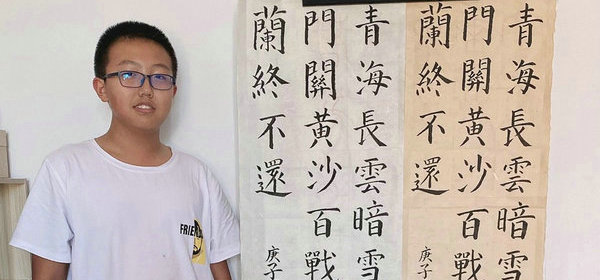 青海長雲暗雪
門關黃沙百戰
蘭終不還
庚子
青海長雲暗雪
門關黃沙百戰
蘭終不還
庚子
FRIE